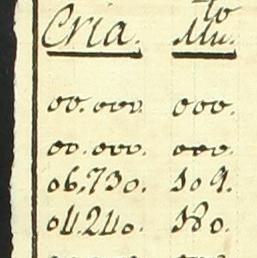 Cria. Mu.to
00.000. 000.
00.000. 000.
06,730. 109.
04.240. 180.